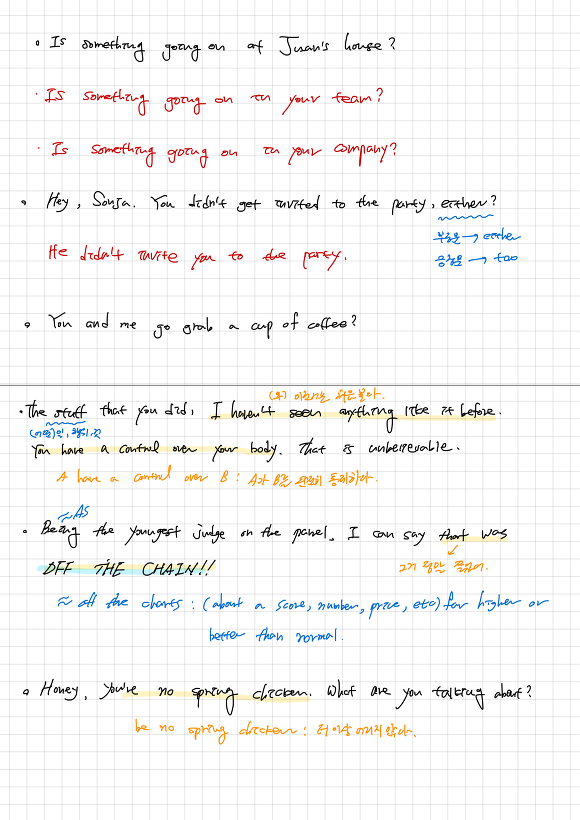 • Is something going on at Juan's house?
· Is something going on in your team?
· Is something going on in your company?
• Hey, Sonja. You didn't get invited to the party, either?
부정문 → either
긍정문 → too
He didn't invite you to the party.
• You and me go grab a cup of coffee?
(와) 이런거는 처음 봤어.
• The stuff that you did, I haven't seen anything like it before.
(어떤)일, 행위, 것
You have a control over your body. That is unbelievable.
A have a control over B : A가 B를 완전히 통제하다.
≈ As
• Being the youngest judge on the panel, I can say that was
OFF THE CHAIN!!
그거 정말 쩔었어.
≈ off the charts : (about a score, number, price, etc) far higher or
better than normal.
• Honey, you're no spring chicken. What are you talking about?
be no spring chicken : 더 이상 어리지 않다.